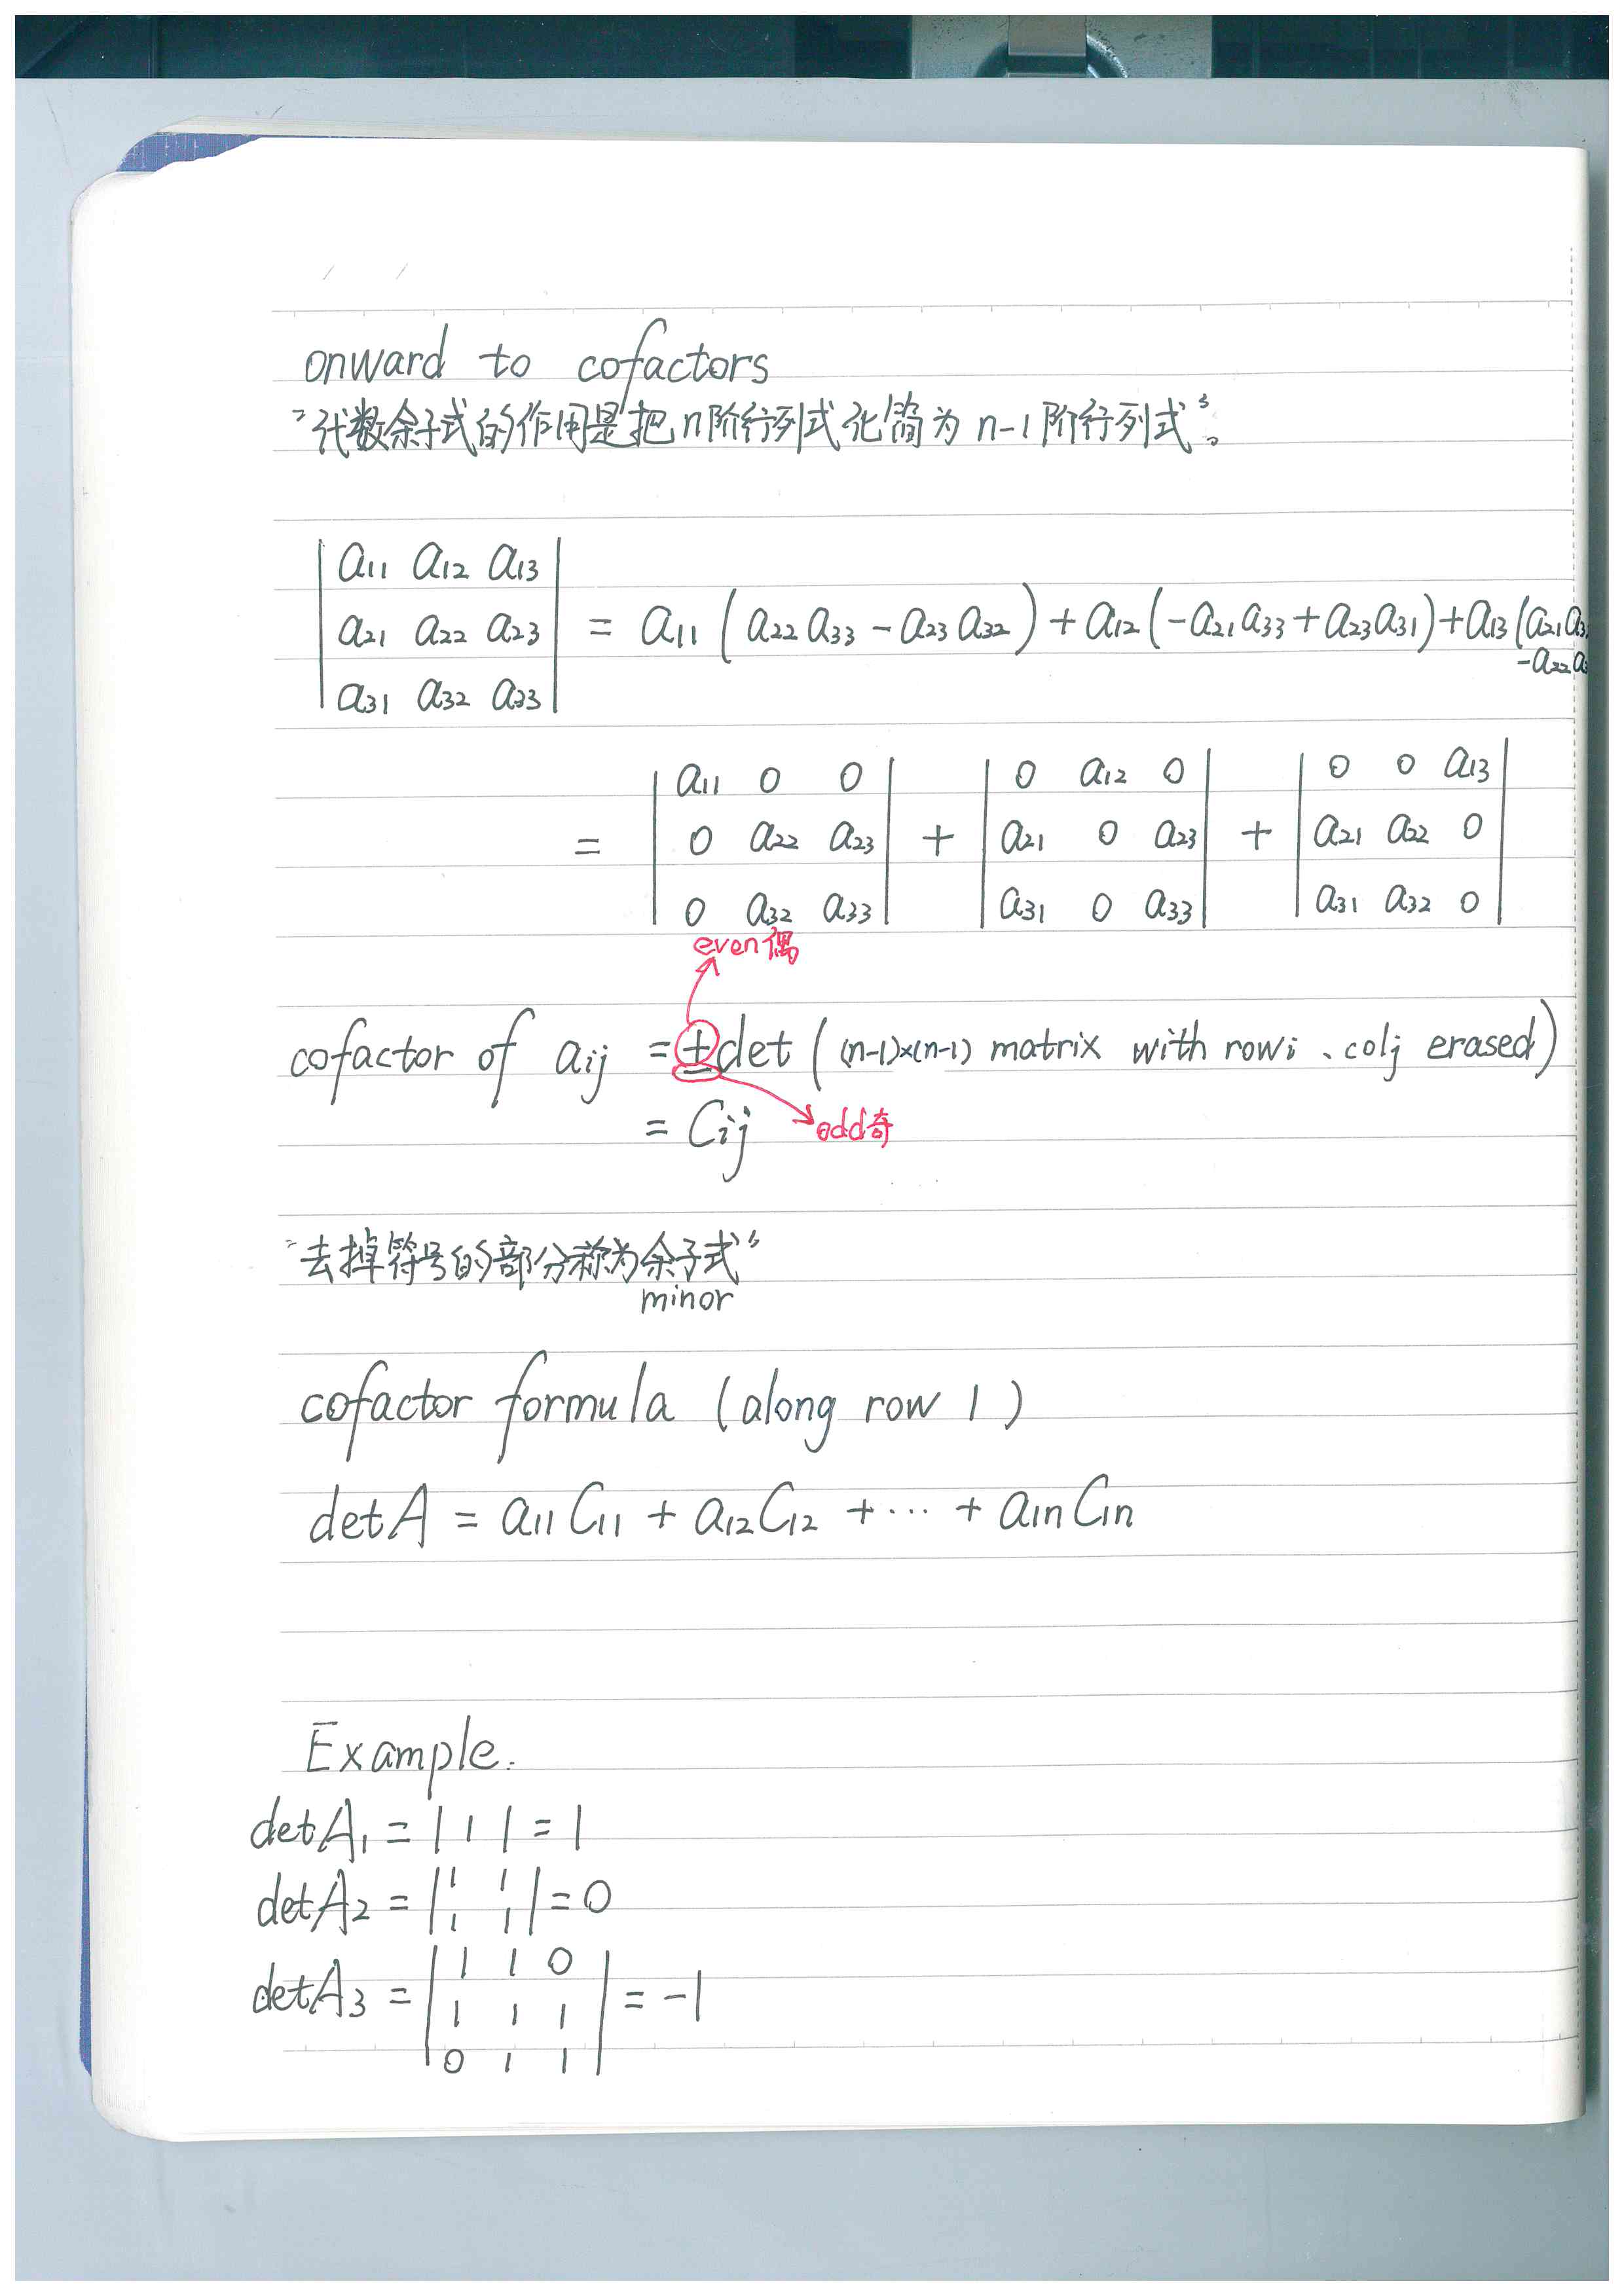 onward to cofactors
"代数余子式的作用是把n阶行列式化简为 n-1阶行列式"。
| a11 a12 a13 |
| a21 a22 a23 | = a11 ( a22 a33 - a23 a32 ) + a12 ( -a21 a33 + a23 a31 ) + a13 ( a21 a3
-a22 a
| a31 a32 a33 |
| a11 0 0 | | 0 a12 0 | | 0 0 a13 |
= | 0 a22 a23 | + | a21 0 a23 | + | a21 a22 0 |
| 0 a32 a33 | | a31 0 a33 | | a31 a32 0 |
even偶
cofactor of aij = ± det ( (n-1)×(n-1) matrix with rowi 、colj erased )
= Cij
odd奇
"去掉符号的部分称为余子式"
minor
cofactor formula (along row 1)
detA = a11 C11 + a12 C12 + ··· + a1n C1n
Example.
detA1 = | 1 | = 1
detA2 = | 1 1 | = 0
| 1 1 |
| 1 1 0 |
detA3 = | 1 1 1 | = -1
| 0 1 1 |